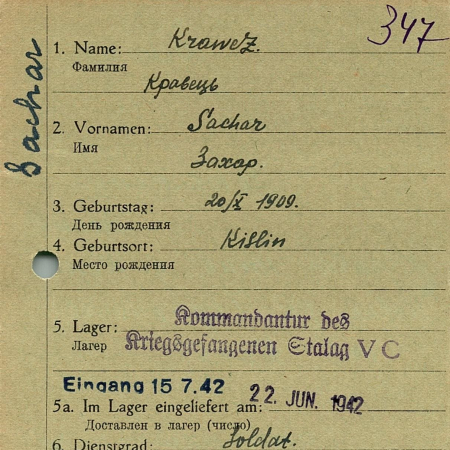 347
Sachar
1. Name: Krawez.
Фамилия
Кравець
2. Vornamen: Sachar
Имя
Захар.
3. Geburtstag: 20/X 1909.
День рождения
4. Geburtsort: Kislin
Место рождения
Kommandantur des
5. Lager: Kriegsgefangenen Stalag V C
Лагер
Eingang 15 7.42
22. JUN. 1942
5a. Im Lager eingeliefert am:
Доставлен в лагер (число)
6. Dienstgrad: Soldat.